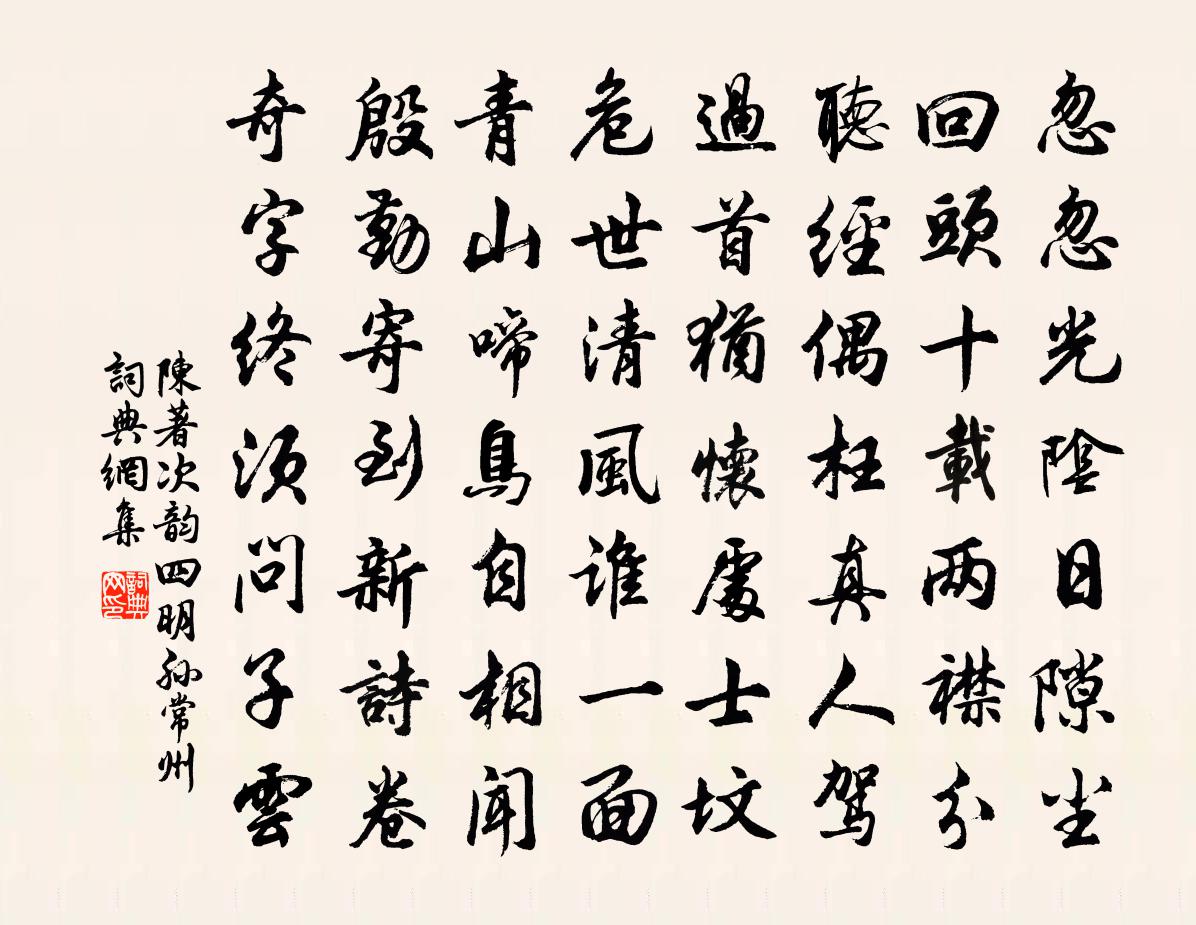 忽忽光陰日隙尘
回頭十載两襟分
聽經偶枉真人駕
過首猶懷處士坟
危世清風誰一面
青山啼鳥自相闻
殷勤寄到新詩卷
奇字终须问子雲
陳著次韵四明孙常州
詞典網集
詞典网印